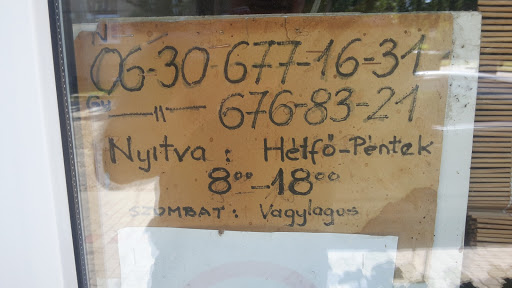 N
06-30 677-16-31
Gy —〃— 676-83-21
Nyitva: Hétfő-Péntek
8⁰⁰-18⁰⁰
SZOMBAT: Vagylagos